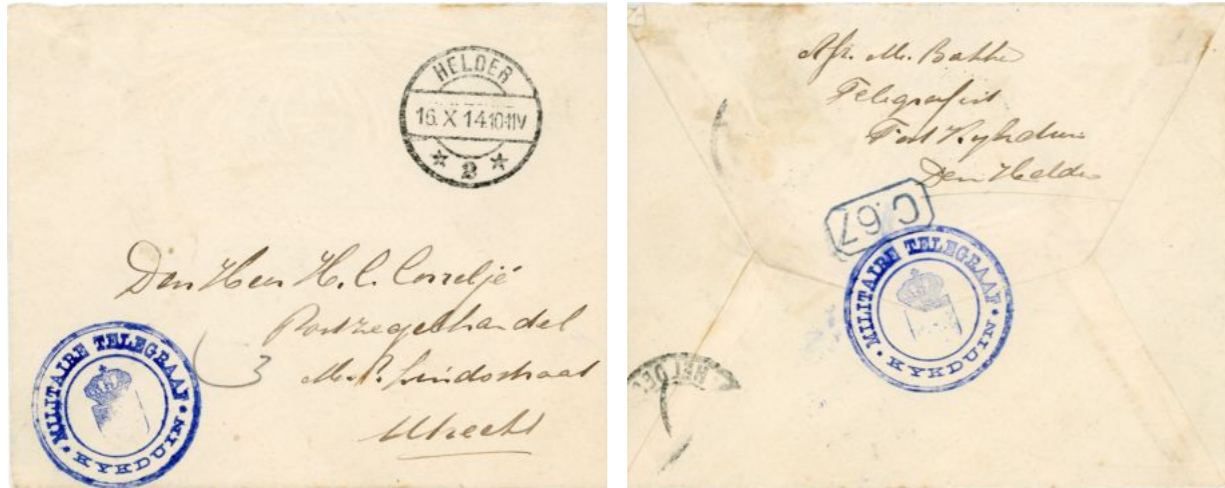 HELDER
16.X 14.10-11V
2
Den Heer H. C. Correljé
Postzegelhandel
3
Utrecht
MILITAIRE TELEGRAAF
KYKDUIN
Afz. M. Bakker
Telegrafist
Fort Kykduin
Den Helder
C.67
MILITAIRE TELEGRAAF
KYKDUIN
HELDE